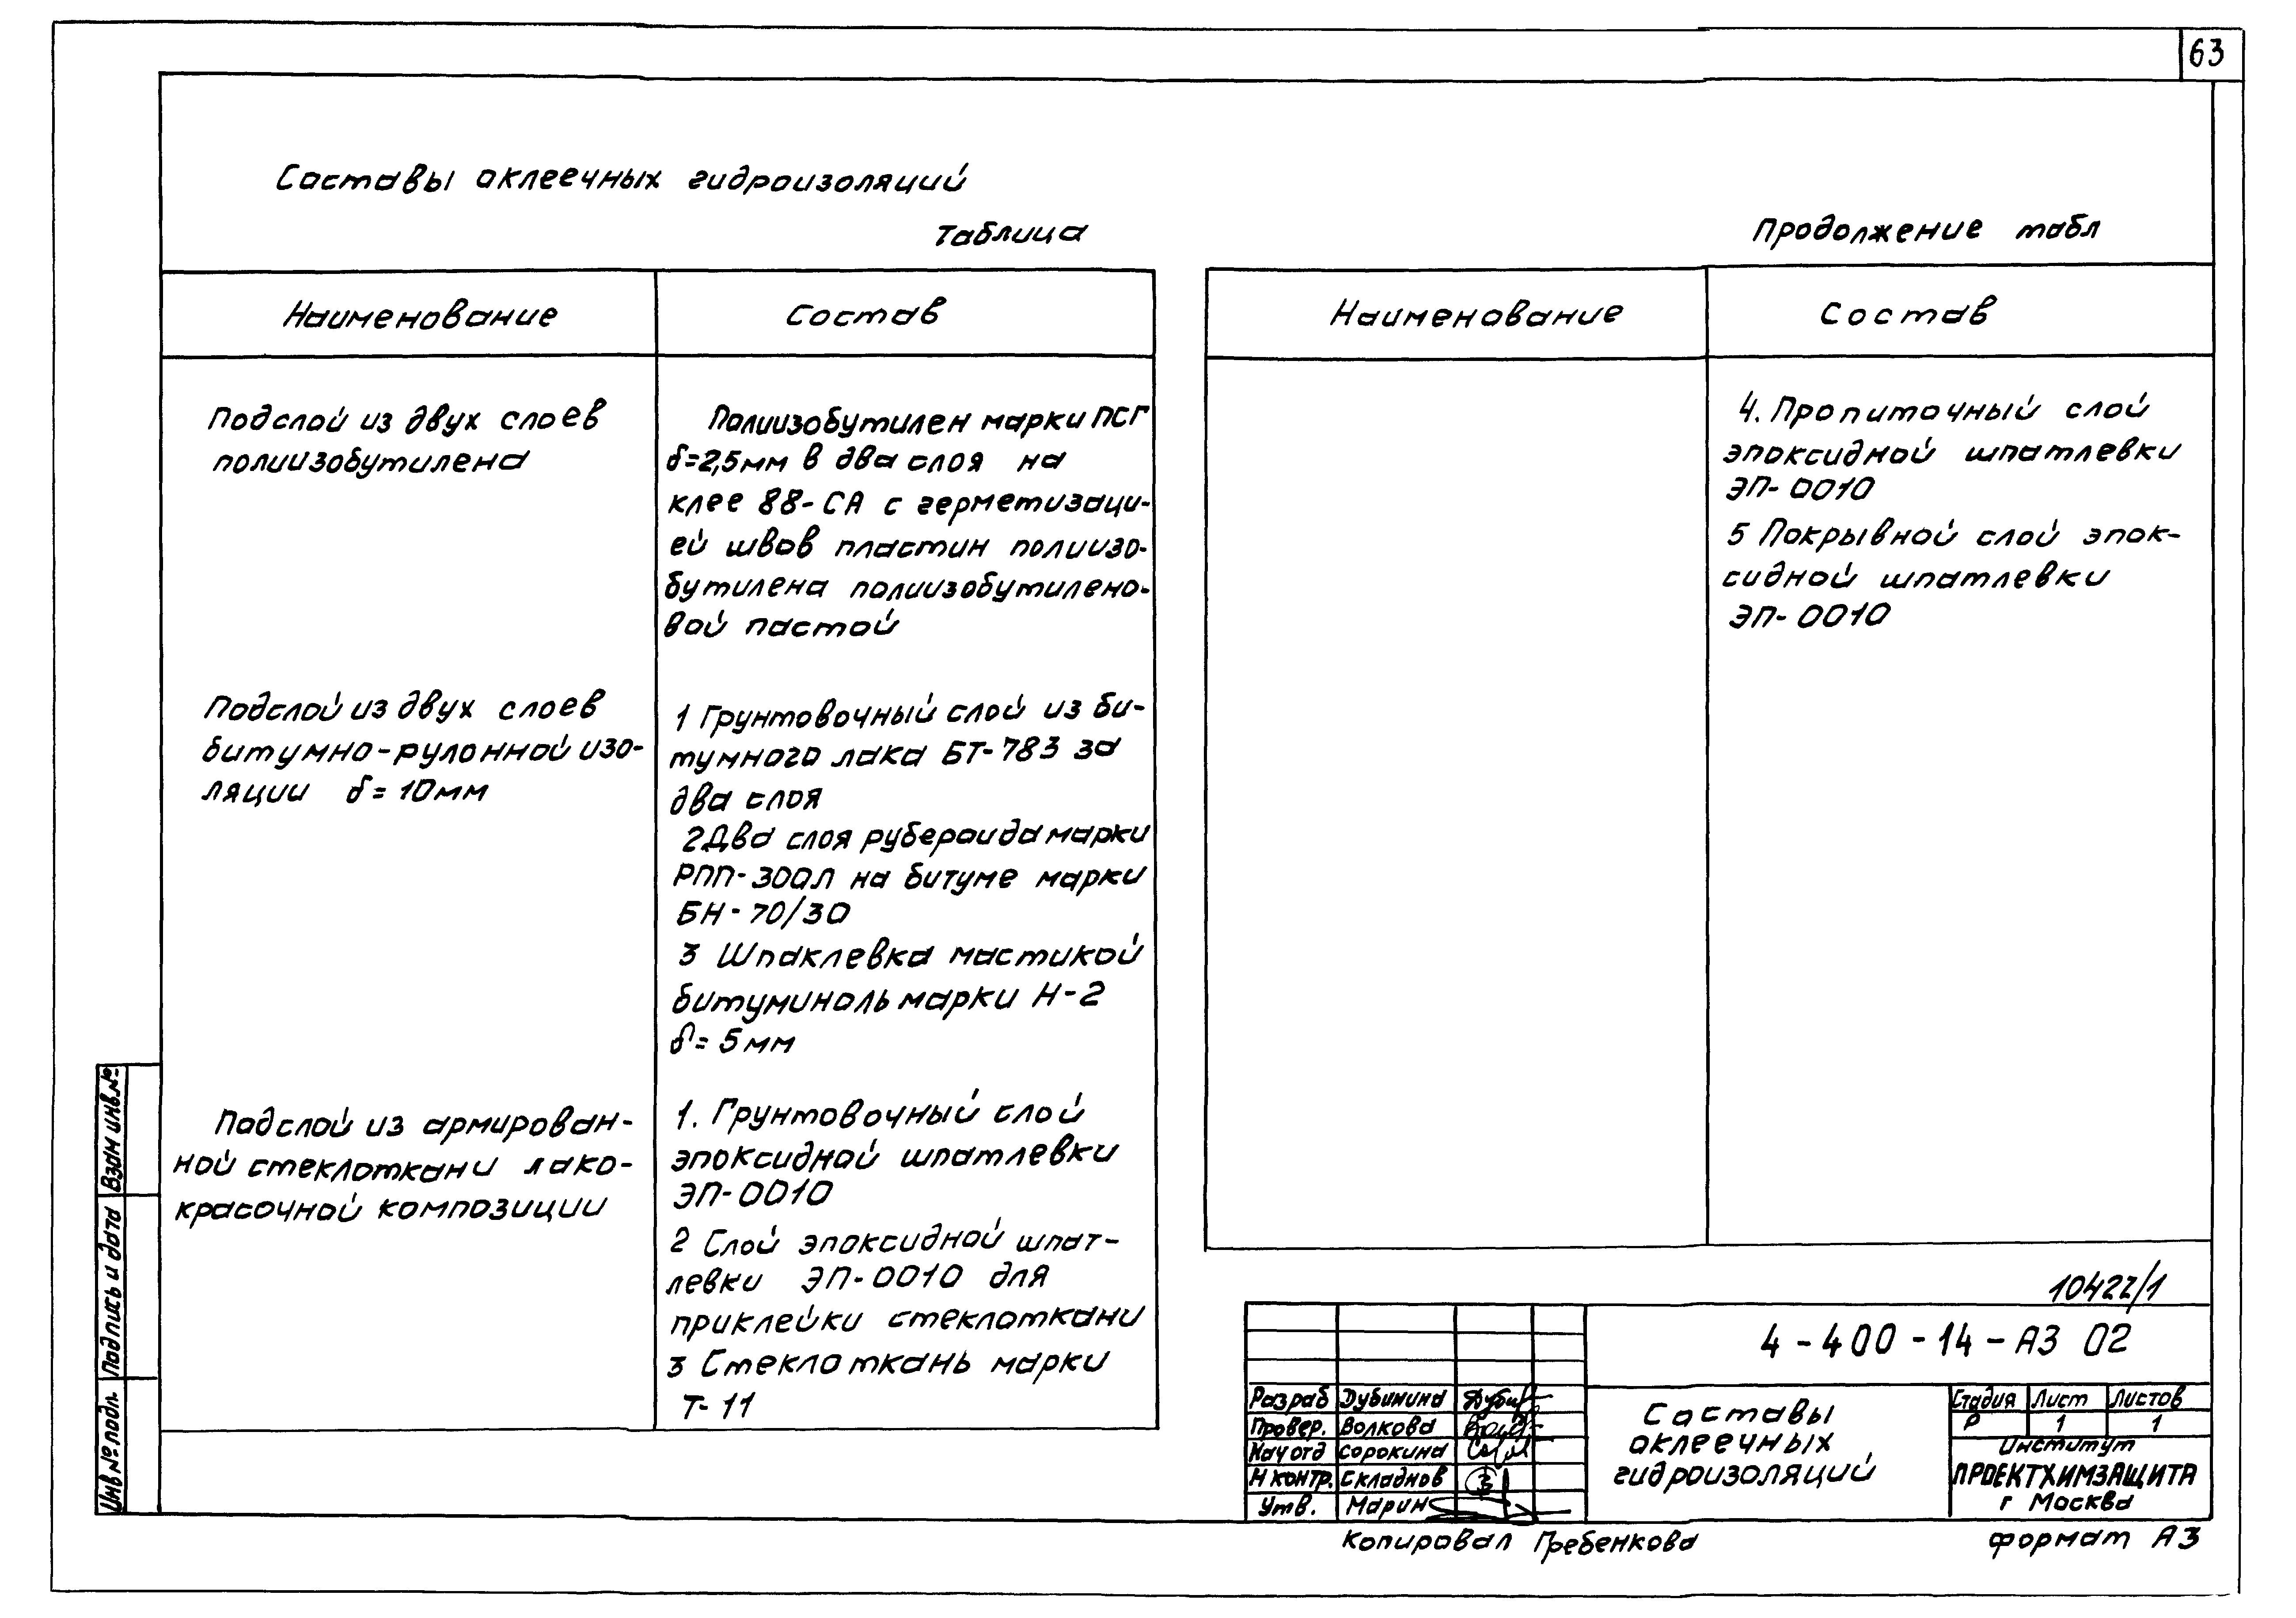 63
Составы оклеечных гидроизоляций
Таблица
Наименование
Состав
Подслой из двух слоев
полиизобутилена
Полиизобутилен марки ПСГ
δ=2,5мм в два слоя на
клее 88-СА с герметизаци-
ей швов пластин полиизо-
бутилена полиизобутилено-
вой пастой
Подслой из двух слоев
битумно-рулонной изо-
ляции δ=10мм
1 Грунтовочный слой из би-
тумного лака БТ-783 за
два слоя
2 Два слоя рубероида марки
РПП-300Л на битуме марки
БН-70/30
3 Шпаклевка мастикой
битуминоль марки Н-2
δ=5мм
Подслой из армирован-
ной стеклоткани лако-
красочной композиции
1. Грунтовочный слой
эпоксидной шпатлевки
ЭП-0010
2 Слой эпоксидной шпат-
левки ЭП-0010 для
приклейки стеклоткани
3 Стеклоткань марки
Т-11
Продолжение табл
Наименование
Состав
4. Пропиточный слой
эпоксидной шпатлевки
ЭП-0010
5 Покрывной слой эпок-
сидной шпатлевки
ЭП-0010
10422/1
4-400-14-АЗ 02
Разраб Дубинина
Провер. Волкова
Нач отд Сорокина
Н контр. Складнов
Утв. Марин
Составы
оклеечных
гидроизоляций
Стадия Лист Листов
Р 1 1
Институт
ПРОЕКТХИМЗАЩИТА
г Москва
Копировал Гребенкова
формат А3
Взам инв.№
Подпись и дата
Инв № подл.